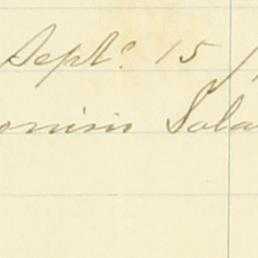 Sept. 15 /
onisio Sala